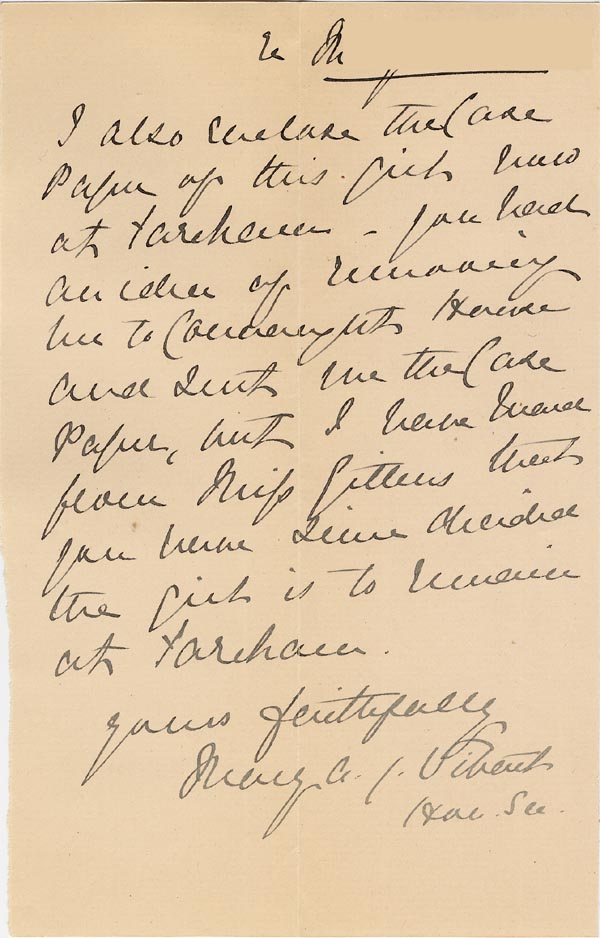 re M
I also enclose the Case
Paper of this girl now
at Fareham - you had
an idea of removing
her to Connaught House
and sent me the Case
Paper, but I have heard
from Miss Gittens that
you have since decided
the girl is to remain
at Fareham.
yours faithfully
Mary A. J. Vibart
Hon. Sec.